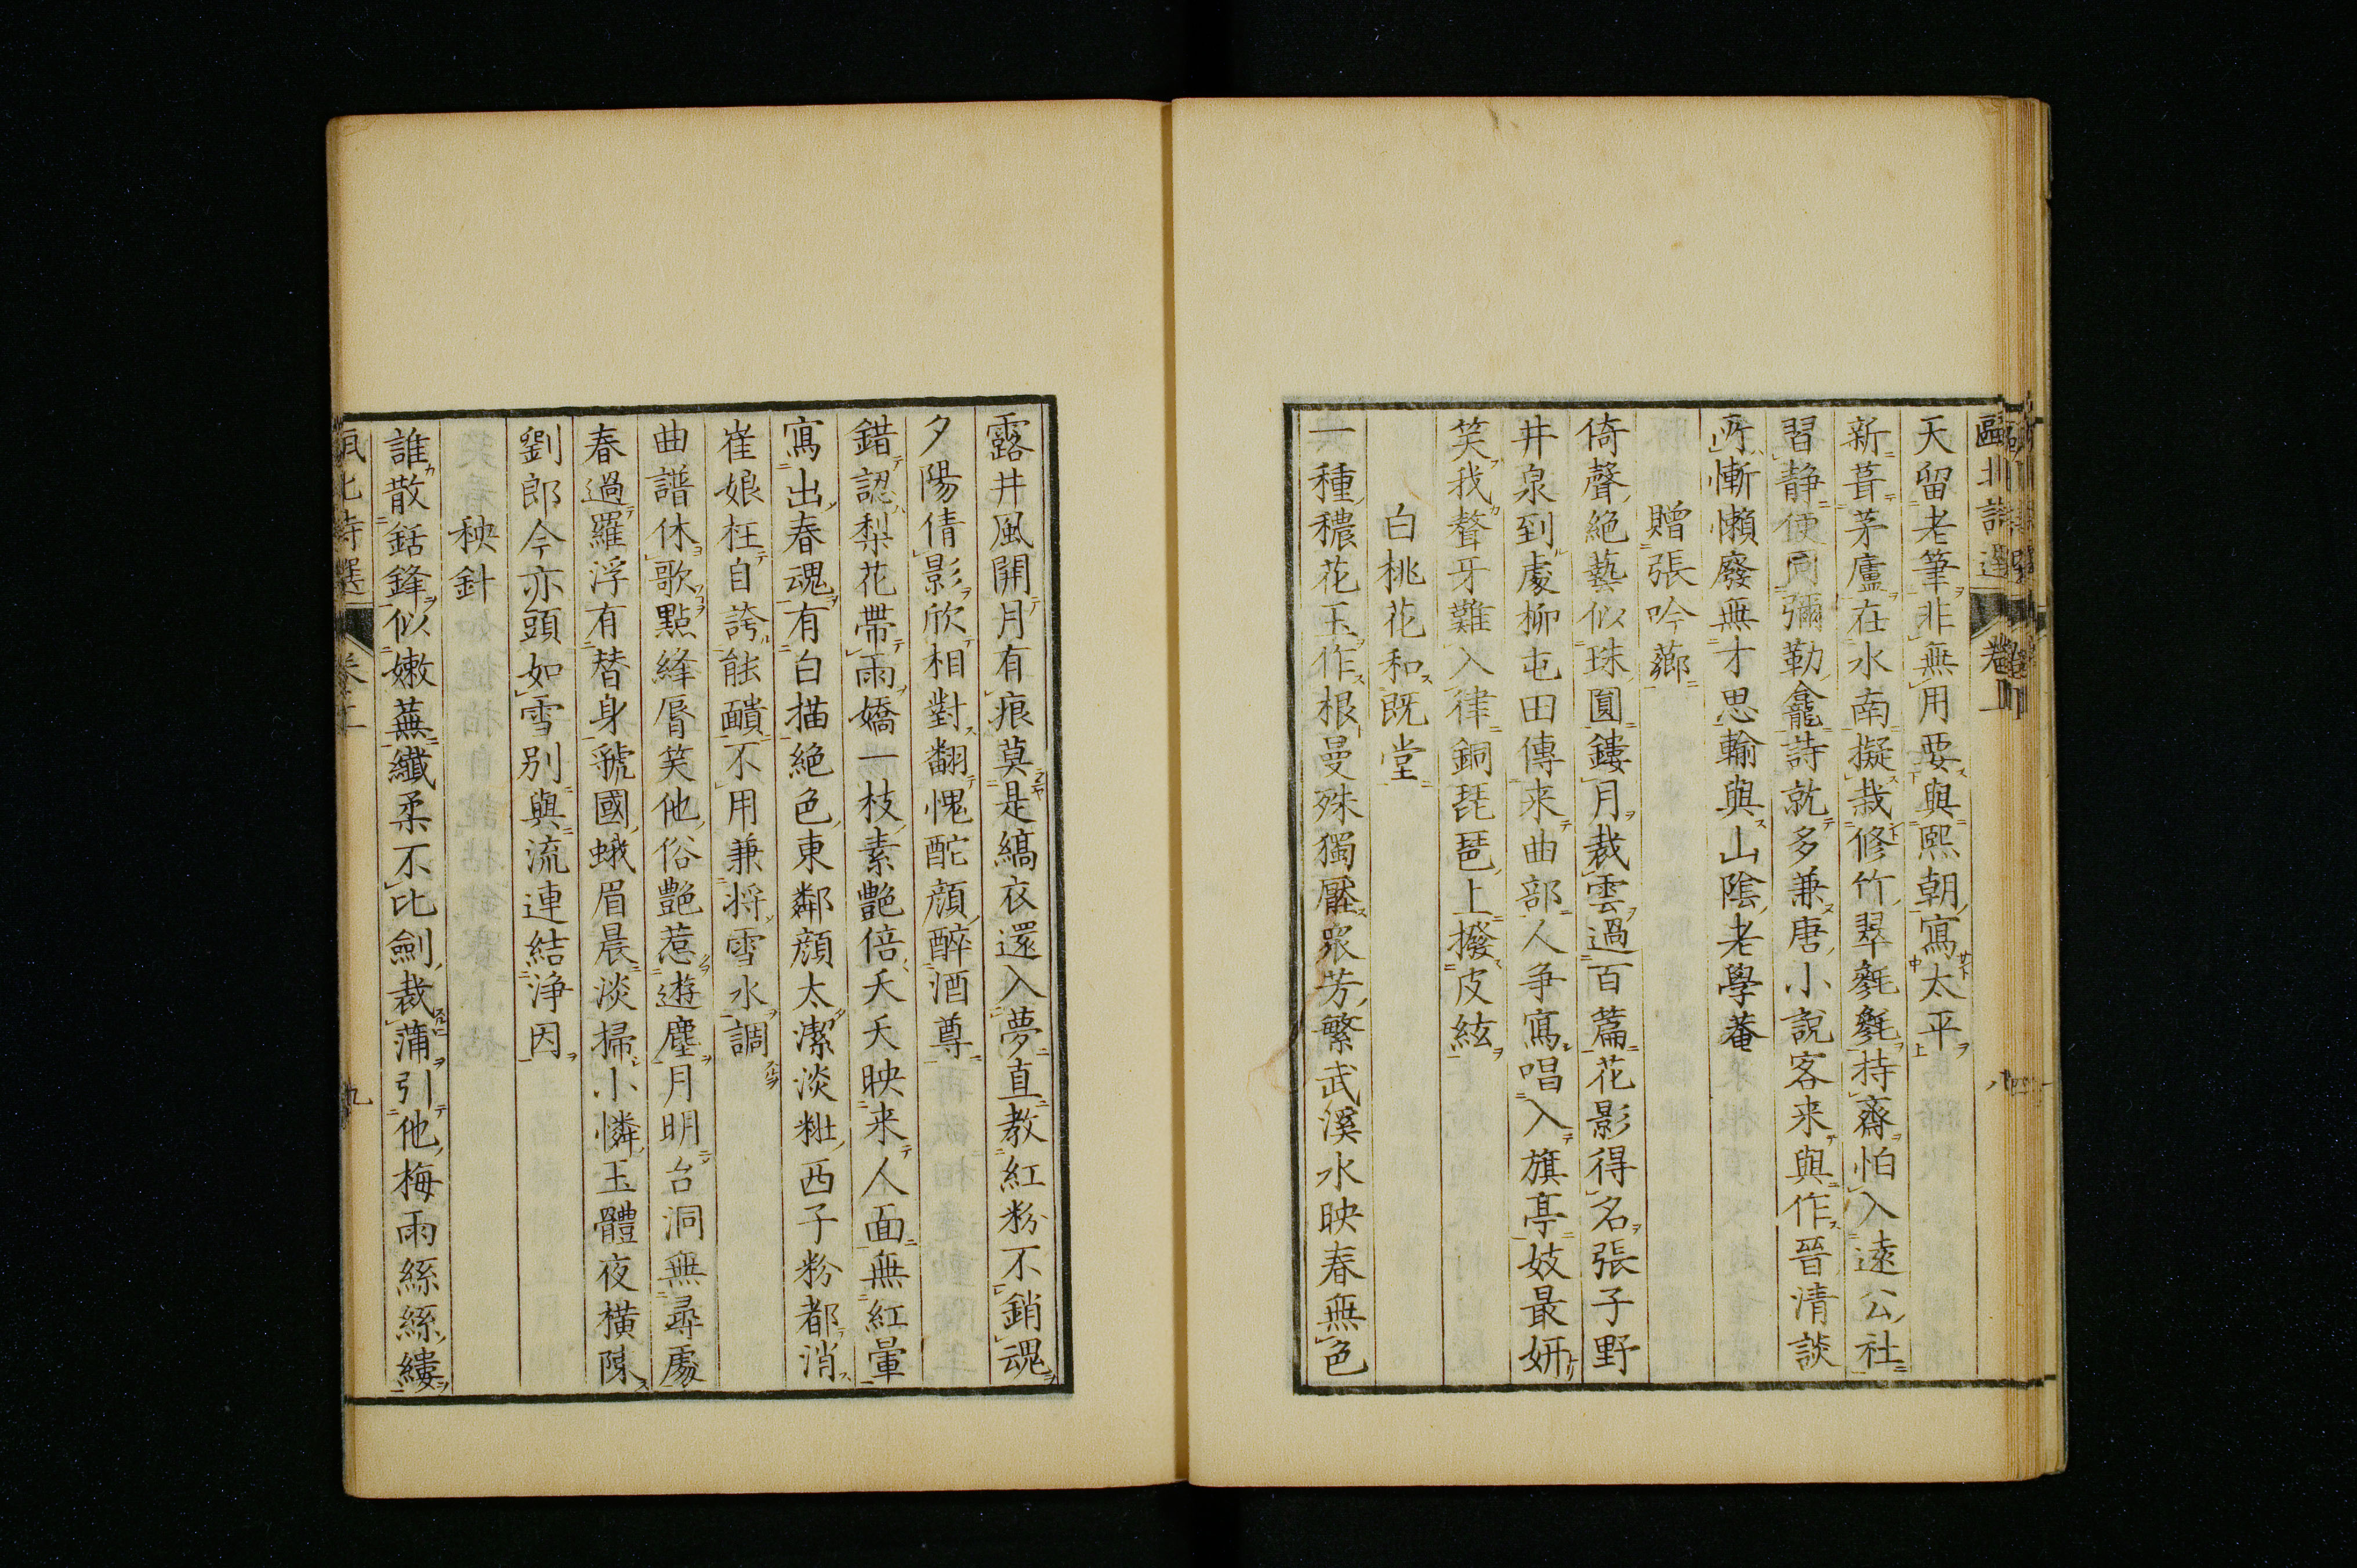 甌北詩選 卷二 八
天留老筆非無用要與熙朝寫太平
新葺茅廬在水南擬栽修竹翠毿毿持齋怕入遠公社
習静便同彌勒龕詩就多兼唐小說客来與作晉清談
所慚懶廢無才思輸與山陰老學菴
贈張吟薌
倚聲絶藝似珠圓鏤月裁雲過百篇花影得名張子野
井泉到處柳屯田傳来曲部人争寫唱入旗亭妓最妍
笑我聱牙難入律銅琵琶上撥皮絃
白桃花和既堂
一種穠花玉作根曼殊獨壓衆芳繁武溪水映春無色
露井風開月有痕莫是縞衣還入夢直教紅粉不銷魂
夕陽倩影欣相對翻愧酡顔醉酒尊
錯認梨花帶雨嬌一枝素艷倍夭夭映来人面無紅暈
寫出春魂有白描絶色東鄰顔太潔淡粧西子粉都消
崔娘枉自誇能靧不用兼将雪水調
曲譜休歌點絳脣笑他俗艷惹遊塵月明台洞無尋處
春過羅浮有替身虢國蛾眉晨淡掃小憐玉體夜横陳
劉郎今亦頭如雪别與流連結浄因
秧針
誰散銛鋒似嫩蕪纎柔不比劍裁蒲引他梅雨絲絲縷
甌北詩選 卷二 九